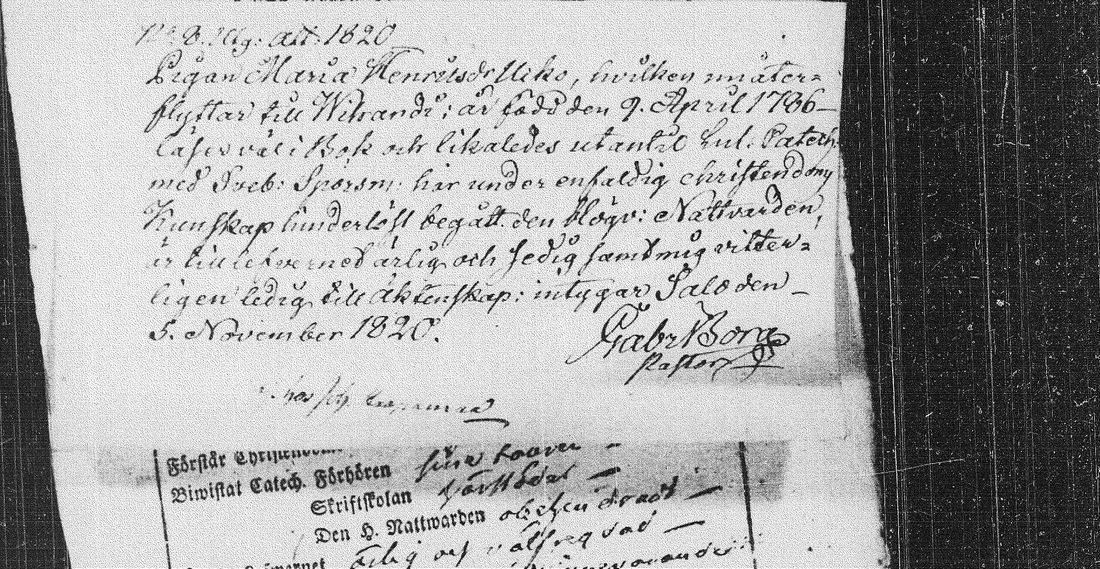 N:o 8. Utg: att: 1820
Pigan Maria Henricsdr Uiko, hvilken nu åter=
flyttar till Witrandi; är född den 9. April 1786 —
läser väl i Bok och likaledes utantil Lut. Catech:
med Sveb: Spörsm: har under enfaldig christendoms
Kunskap hinderlöst begått den Högv: Nattvarden,
är till lefvernet ärlig och sedig samt mig vitter=
ligen ledig till Äktenskap; intygar Salo den —
5. November 1820.
Gabr Borg
Pastor
Förstår
Biwistat Catech. Förhören
Skriftskolan försedd —
Den H. Nattwarden obehindradt —
ärlig och välfregdad —